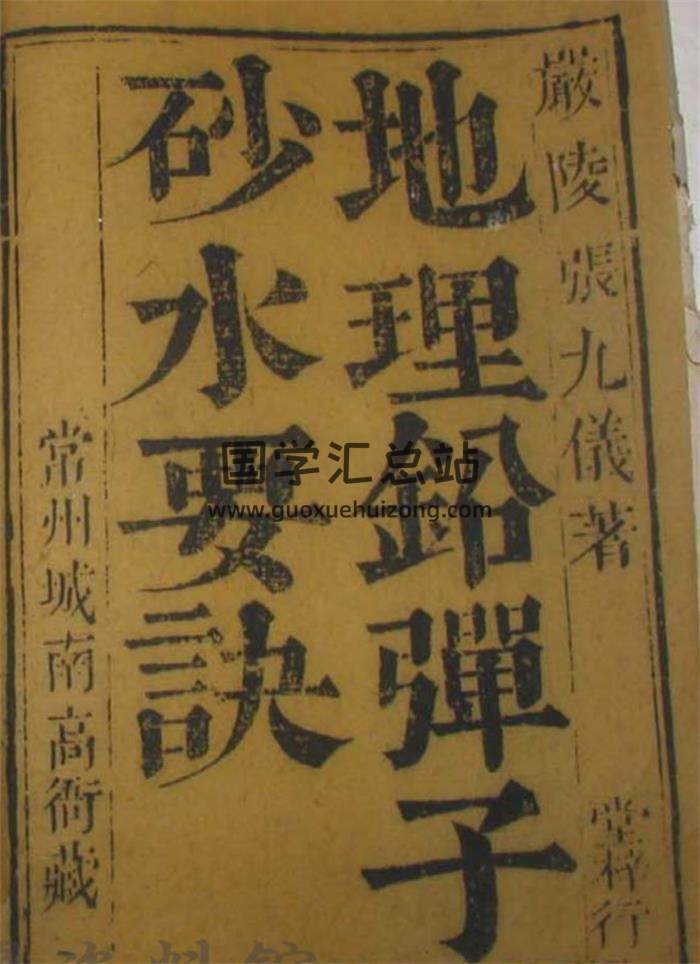 嚴陵張九儀著
堂梓行
地理鉛彈子
砂水要訣
常州城南高衙藏
国学汇总站
www.guoxuehuizong.com